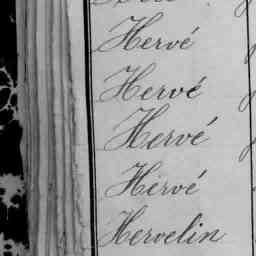 Hervé
Hervé
Hervé
Hervé
Hervelin